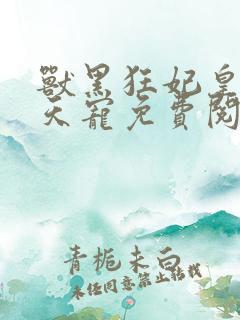 獸黑狂妃皇
天寵免費閱
青栀未白
未经同意禁止转载